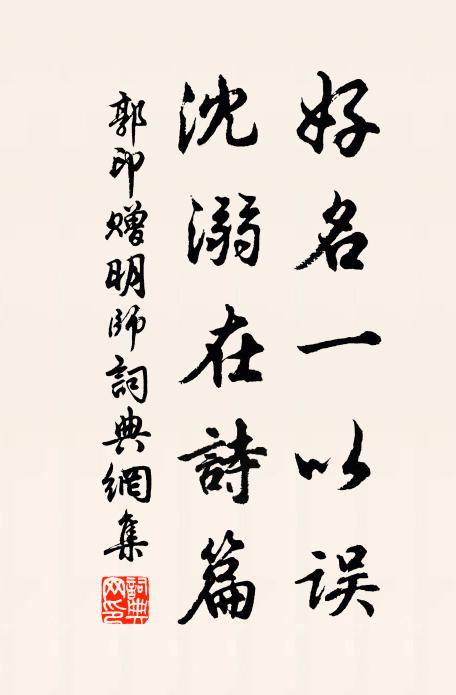 好名一以误
沈溺在詩篇
郭印赠明師詞典網集
詞典网印